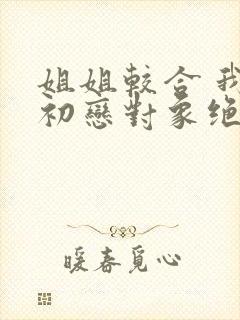 姐姐較合我
初戀對象絕
暖春覓心